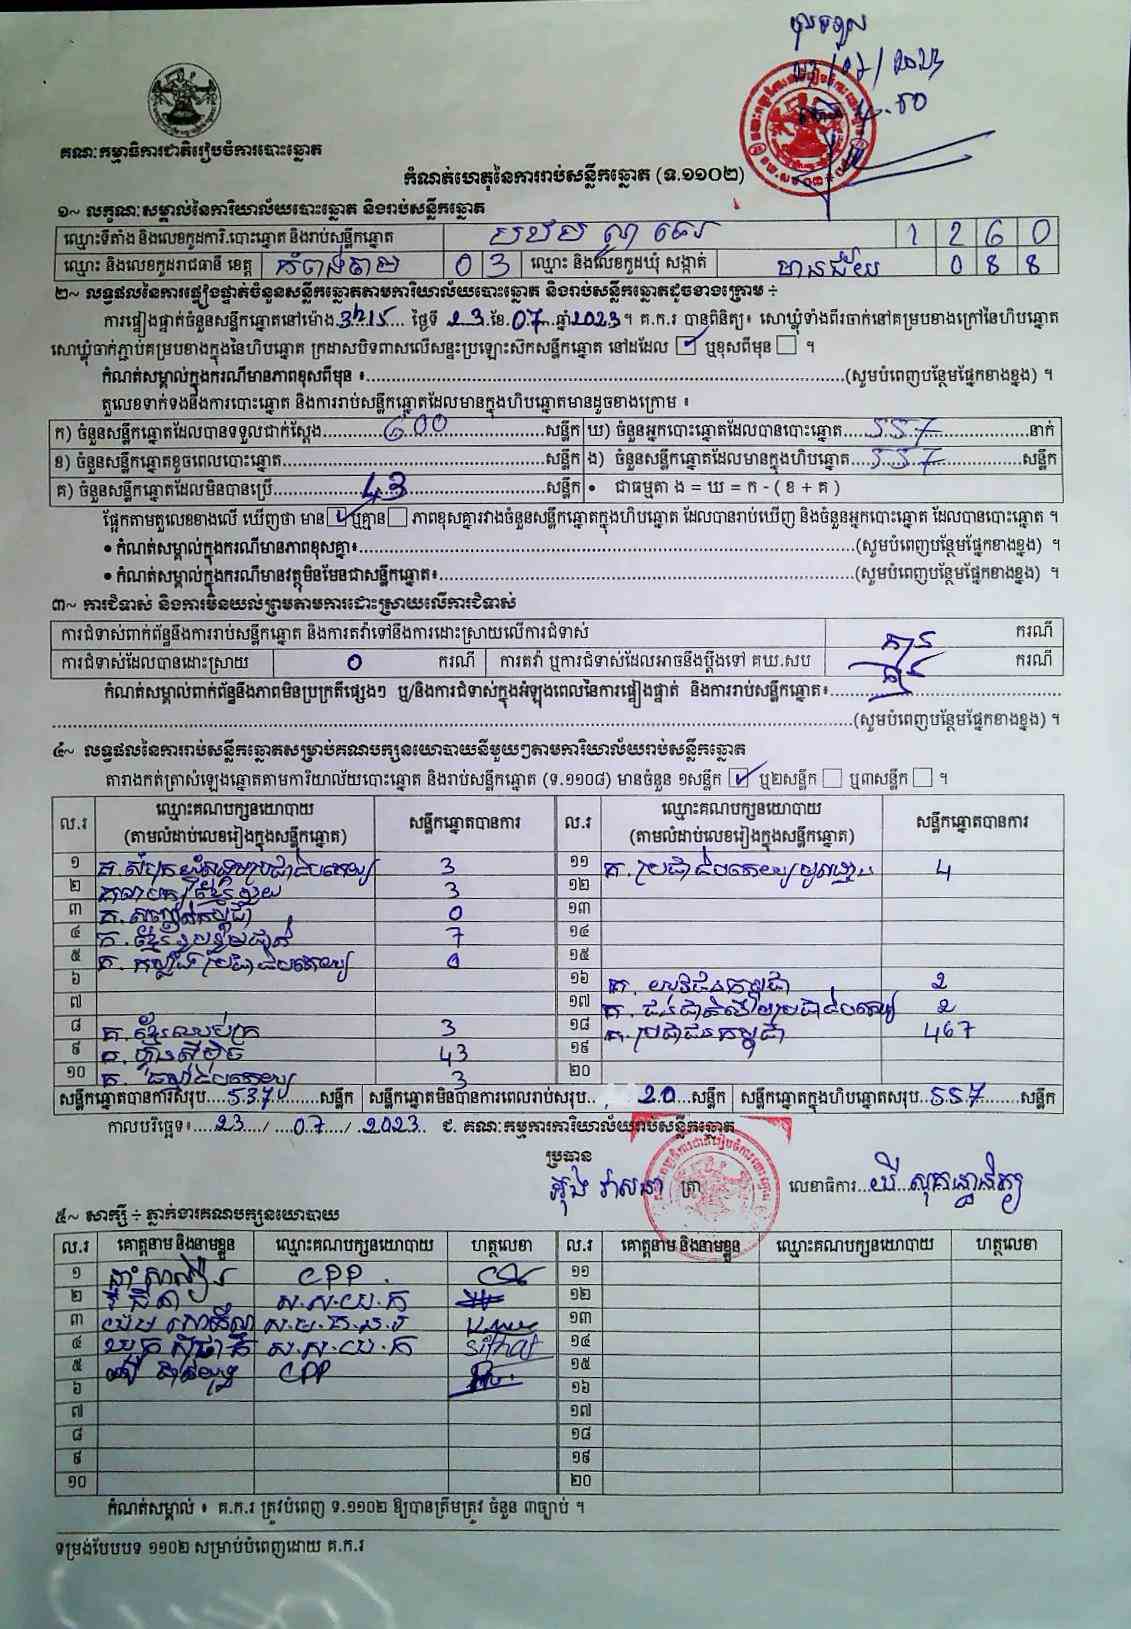 គណៈកម្មាធិការជាតិរៀបចំការបោះឆ្នោត
កំណត់ហេតុនៃការរាប់សន្លឹកឆ្នោត (ទ.១១០២)
១~ លក្ខណៈសម្គាល់នៃការិយាល័យបោះឆ្នោត និងរាប់សន្លឹកឆ្នោត
ឈ្មោះទីតាំង និងលេខកូដការិ.បោះឆ្នោត និងរាប់សន្លឹកឆ្នោត 1 2 6 0
ឈ្មោះ និងលេខកូដរាជធានី ខេត្ត កំពង់ចាម 0 3 ឈ្មោះ និងលេខកូដឃុំ សង្កាត់ មានជ័យ 0 8 8
២~ លទ្ធផលនៃការផ្ទៀងផ្ទាត់ចំនួនសន្លឹកឆ្នោតតាមការិយាល័យបោះឆ្នោត និងរាប់សន្លឹកឆ្នោតដូចខាងក្រោម ÷
ការផ្ទៀងផ្ទាត់ចំនួនសន្លឹកឆ្នោតនៅម៉ោង 3h15 ថ្ងៃទី 23 ខែ 07 ឆ្នាំ 2023 ។ គ.ក.រ បានពិនិត្យ៖ សោឃ្លុំទាំងពីរចាក់នៅគម្របខាងក្រៅនៃហិបឆ្នោត
សោឃ្លុំចាក់ភ្ជាប់គម្របខាងក្នុងនៃហិបឆ្នោត ក្រដាសបិទពាសលើសន្ទះប្រឡោះសិកសន្លឹកឆ្នោត នៅដដែល ☑ ឬខុសពីមុន ☐ ។
កំណត់សម្គាល់ក្នុងករណីមានភាពខុសពីមុន ៖ (សូមបំពេញបន្ថែមផ្នែកខាងខ្នង) ។
តួលេខទាក់ទងនឹងការបោះឆ្នោត និងការរាប់សន្លឹកឆ្នោតដែលមានក្នុងហិបឆ្នោតមានដូចខាងក្រោម ៖
ក) ចំនួនសន្លឹកឆ្នោតដែលបានទទួលជាក់ស្តែង 600 សន្លឹក ឃ) ចំនួនអ្នកបោះឆ្នោតដែលបានបោះឆ្នោត 557 នាក់
ខ) ចំនួនសន្លឹកឆ្នោតខូចពេលបោះឆ្នោត សន្លឹក ង) ចំនួនសន្លឹកឆ្នោតដែលមានក្នុងហិបឆ្នោត 557 សន្លឹក
គ) ចំនួនសន្លឹកឆ្នោតដែលមិនបានប្រើ 43 សន្លឹក • ជាធម្មតា ង = ឃ = ក - ( ខ + គ )
ផ្អែកតាមតួលេខខាងលើ ឃើញថា មាន ☑ ឬគ្មាន ☐ ភាពខុសគ្នារវាងចំនួនសន្លឹកឆ្នោតក្នុងហិបឆ្នោត ដែលបានរាប់ឃើញ និងចំនួនអ្នកបោះឆ្នោត ដែលបានបោះឆ្នោត ។
• កំណត់សម្គាល់ក្នុងករណីមានភាពខុសគ្នា៖ (សូមបំពេញបន្ថែមផ្នែកខាងខ្នង) ។
• កំណត់សម្គាល់ក្នុងករណីមានវត្ថុមិនមែនជាសន្លឹកឆ្នោត៖ (សូមបំពេញបន្ថែមផ្នែកខាងខ្នង) ។
៣~ ការជំទាស់ និងការមិនយល់ព្រមតាមការដោះស្រាយលើការជំទាស់
ការជំទាស់ពាក់ព័ន្ធនឹងការរាប់សន្លឹកឆ្នោត និងការតវ៉ាទៅនឹងការដោះស្រាយលើការជំទាស់ គ្មាន ករណី
ការជំទាស់ដែលបានដោះស្រាយ 0 ករណី ការតវ៉ា ឬការជំទាស់ដែលអាចនឹងប្តឹងទៅ គឃ.សប គ្មាន ករណី
កំណត់សម្គាល់ពាក់ព័ន្ធនឹងភាពមិនប្រក្រតីផ្សេងៗ ឬ/និងការជំទាស់ក្នុងអំឡុងពេលនៃការផ្ទៀងផ្ទាត់ និងការរាប់សន្លឹកឆ្នោត៖
(សូមបំពេញបន្ថែមផ្នែកខាងខ្នង) ។
៤~ លទ្ធផលនៃការរាប់សន្លឹកឆ្នោតសម្រាប់គណបក្សនយោបាយនីមួយៗតាមការិយាល័យរាប់សន្លឹកឆ្នោត
តារាងកត់ត្រាសំឡេងឆ្នោតតាមការិយាល័យបោះឆ្នោត និងរាប់សន្លឹកឆ្នោត (ទ.១១០៨) មានចំនួន ១សន្លឹក ☑ ឬ២សន្លឹក ☐ ឬ៣សន្លឹក ☐ ។
ល.រ ឈ្មោះគណបក្សនយោបាយ សន្លឹកឆ្នោតបានការ ល.រ ឈ្មោះគណបក្សនយោបាយ សន្លឹកឆ្នោតបានការ
(តាមលំដាប់លេខរៀងក្នុងសន្លឹកឆ្នោត) (តាមលំដាប់លេខរៀងក្នុងសន្លឹកឆ្នោត)
១ 3 ១១ 4
២ 3 ១២
៣ 0 ១៣
៤ គ.ខ្មែររួបរួមជាតិ 7 ១៤
៥ គ.កម្លាំងប្រជាធិបតេយ្យ 0 ១៥
៦ ១៦ គ. យុវជនកម្ពុជា 2
៧ ១៧ 2
៨ គ.ខ្មែរឈប់ក្រ 3 ១៨ គ.ប្រជាជនកម្ពុជា 467
៩ គ.ហ្វ៊ុនស៊ិនប៉ិច 43 ១៩
១០ 3 ២០
សន្លឹកឆ្នោតបានការសរុប 537 សន្លឹក សន្លឹកឆ្នោតមិនបានការពេលរាប់សរុប 20 សន្លឹក សន្លឹកឆ្នោតក្នុងហិបឆ្នោតសរុប 557 សន្លឹក
កាលបរិច្ឆេទ៖ 23 / 07 / 2023 ជ. គណៈកម្មការការិយាល័យរាប់សន្លឹកឆ្នោត
ប្រធាន
អ៊ុង វាសនា ត្រា លេខាធិការ
៥~ សាក្សី ÷ ភ្នាក់ងារគណបក្សនយោបាយ
ល.រ គោត្តនាម និងនាមខ្លួន ឈ្មោះគណបក្សនយោបាយ ហត្ថលេខា ល.រ គោត្តនាម និងនាមខ្លួន ឈ្មោះគណបក្សនយោបាយ ហត្ថលេខា
១ CPP ១១
២ ស.ស.យ.ក ១២
៣ ១៣
៤ ស.ស.យ.ក ១៤
៥ CPP ១៥
៦ ១៦
៧ ១៧
៨ ១៨
៩ ១៩
១០ ២០
កំណត់សម្គាល់ ៖ គ.ក.រ ត្រូវបំពេញ ទ.១១០២ ឱ្យបានត្រឹមត្រូវ ចំនួន ៣ច្បាប់ ។
ទម្រង់បែបបទ ១១០២ សម្រាប់បំពេញដោយ គ.ក.រ